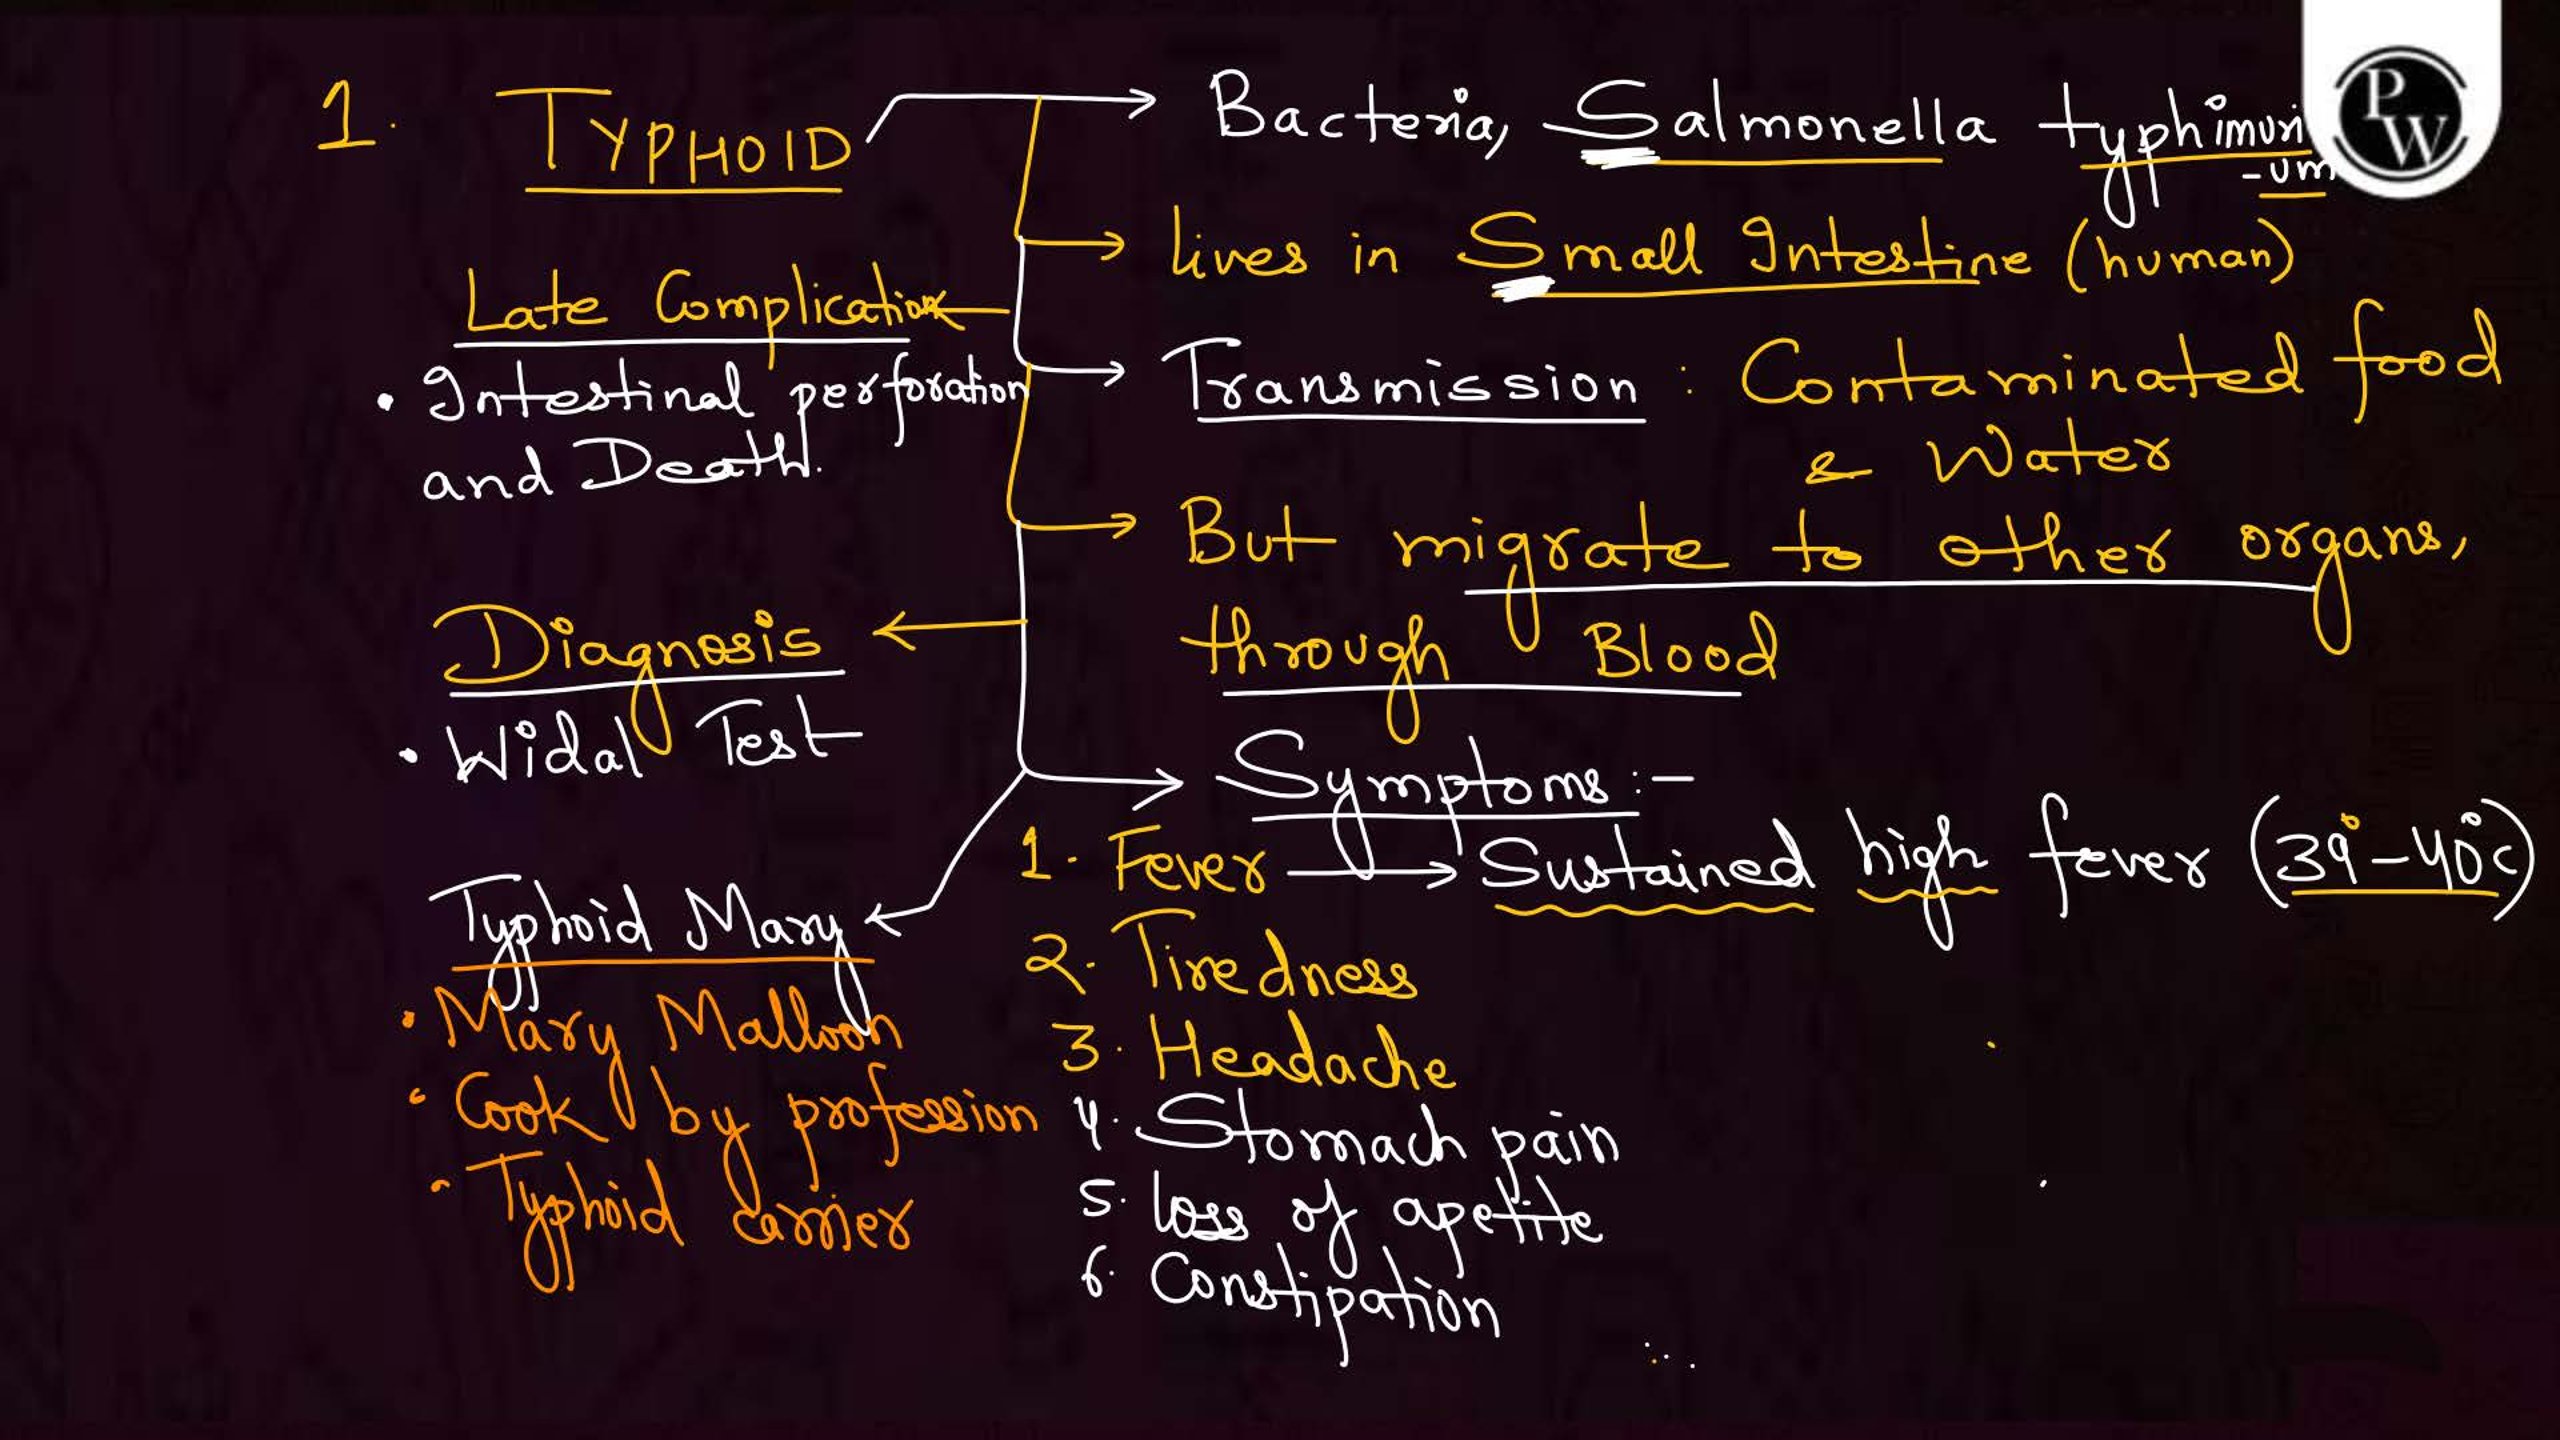 1. TYPHOID
Bacteria, Salmonella typhimuri
-um
PW
lives in Small Intestine (human)
Late Complication
Transmission : Contaminated food
& Water
• Intestinal perforation
and Death.
But migrate to other organs,
through Blood
Diagnosis
• Widal Test
Symptoms :-
1. Fever → Sustained high fever (39°-40°c)
2. Tiredness
3. Headache
4. Stomach pain
5. loss of apetite
6. Constipation
Typhoid Mary
• Mary Malloon
• Cook by profession
• Typhoid carrier